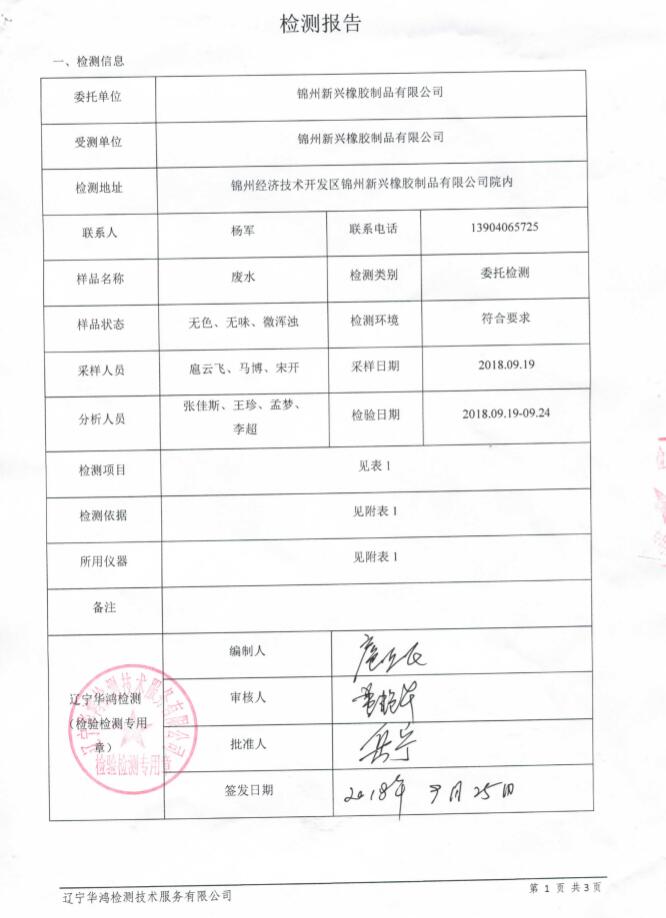 检测报告
一、检测信息
委托单位 锦州新兴橡胶制品有限公司
受测单位 锦州新兴橡胶制品有限公司
检测地址 锦州经济技术开发区锦州新兴橡胶制品有限公司院内
联系人 杨军 联系电话 13904065725
样品名称 废水 检测类别 委托检测
样品状态 无色、无味、微浑浊 检测环境 符合要求
采样人员 扈云飞、马博、宋开 采样日期 2018.09.19
分析人员 张佳斯、王珍、孟梦、
李超 检验日期 2018.09.19-09.24
检测项目 见表1
检测依据 见附表1
所用仪器 见附表1
备注
辽宁华鸿检测
（检验检测专用
章）
辽宁华鸿检测技术服务有限公司
检验检测专用章
编制人
审核人
批准人
签发日期 2018年 9月25日
辽宁华鸿检测技术服务有限公司 第 1 页 共3页